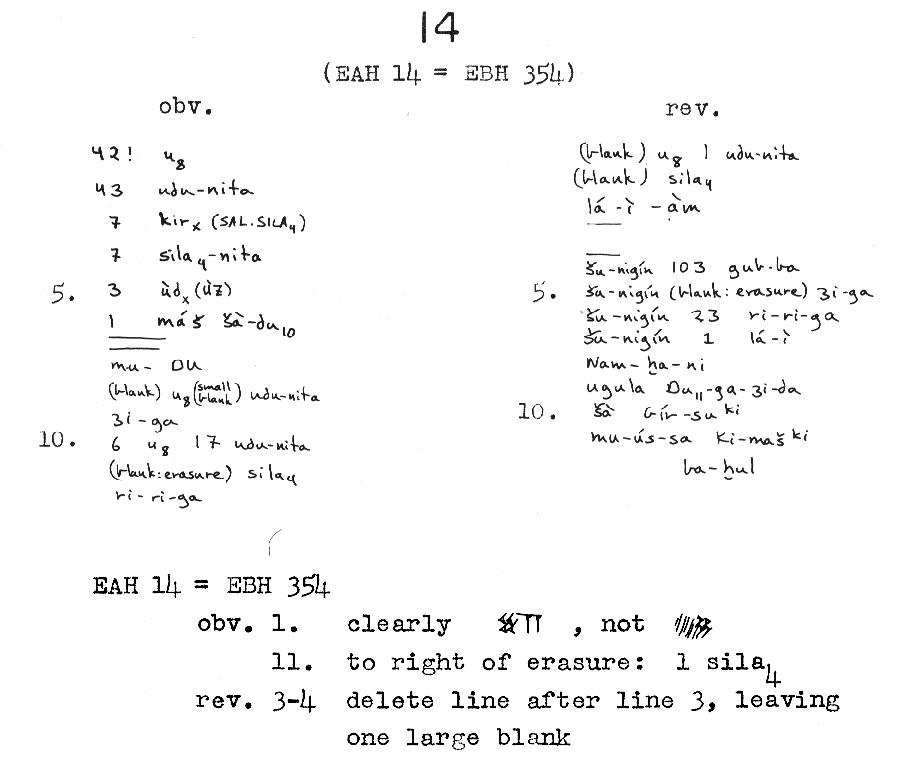 14
(EAH 14 = EBH 354)
obv.
42! u₈
43 udu-nita
7 kirₓ (SAL.SILA₄)
7 sila₄-nita
5. 3 ùdₓ (ÙZ)
1 máš šà-du₁₀
mu- DU
(blank) u₈ (small blank) udu-nita
zi-ga
10. 6 u₈ 17 udu-nita
(blank: erasure) sila₄
ri-ri-ga
rev.
(blank) u₈ 1 udu-nita
(blank) sila₄
lá-ì-àm
šu-nigín 103 gub-ba
5. šu-nigín (blank: erasure) zi-ga
šu-nigín 23 ri-ri-ga
šu-nigín 1 lá-ì
Nam-ḫa-ni
ugula Du₁₁-ga-zi-da
10. šà Gír-su ki
mu-ús-sa Ki-maš ki
ba-ḫul
EAH 14 = EBH 354
obv. 1. clearly , not
11. to right of erasure: 1 sila₄
rev. 3-4 delete line after line 3, leaving
one large blank